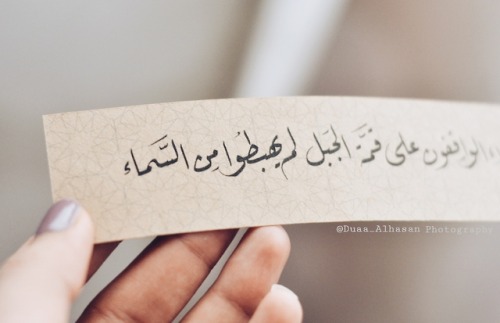 الواقفون على قمَّة الجَبل لم يهبطُوا مِن السَّماء
@Duaa_Alhasan Photography